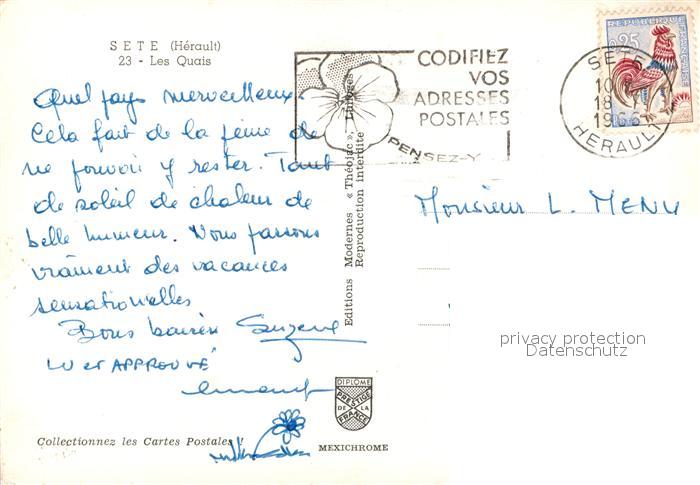 SETE (Hérault)
23 - Les Quais
Quel pays merveilleux.
Cela fait de la peine de
ne pouvoir y rester. Tant
de soleil de chaleur de
belle humeur. Nous passons
vraiment des vacances
sensationnelles
Bons baisers Suzanne
LU et APPROUVÉ
Collectionnez les Cartes Postales !
Editions Modernes « Théojac », Limoges
Reproduction interdite
DIPLOME
PRESTIGE
DE LA
FRANCE
MEXICHROME
CODIFIEZ
VOS
ADRESSES
POSTALES
PENSEZ-Y
SETE
18
1966
HERAULT
0,25
REPUBLIQUE FRANÇAISE
Monsieur L. MENU
privacy protection
Datenschutz